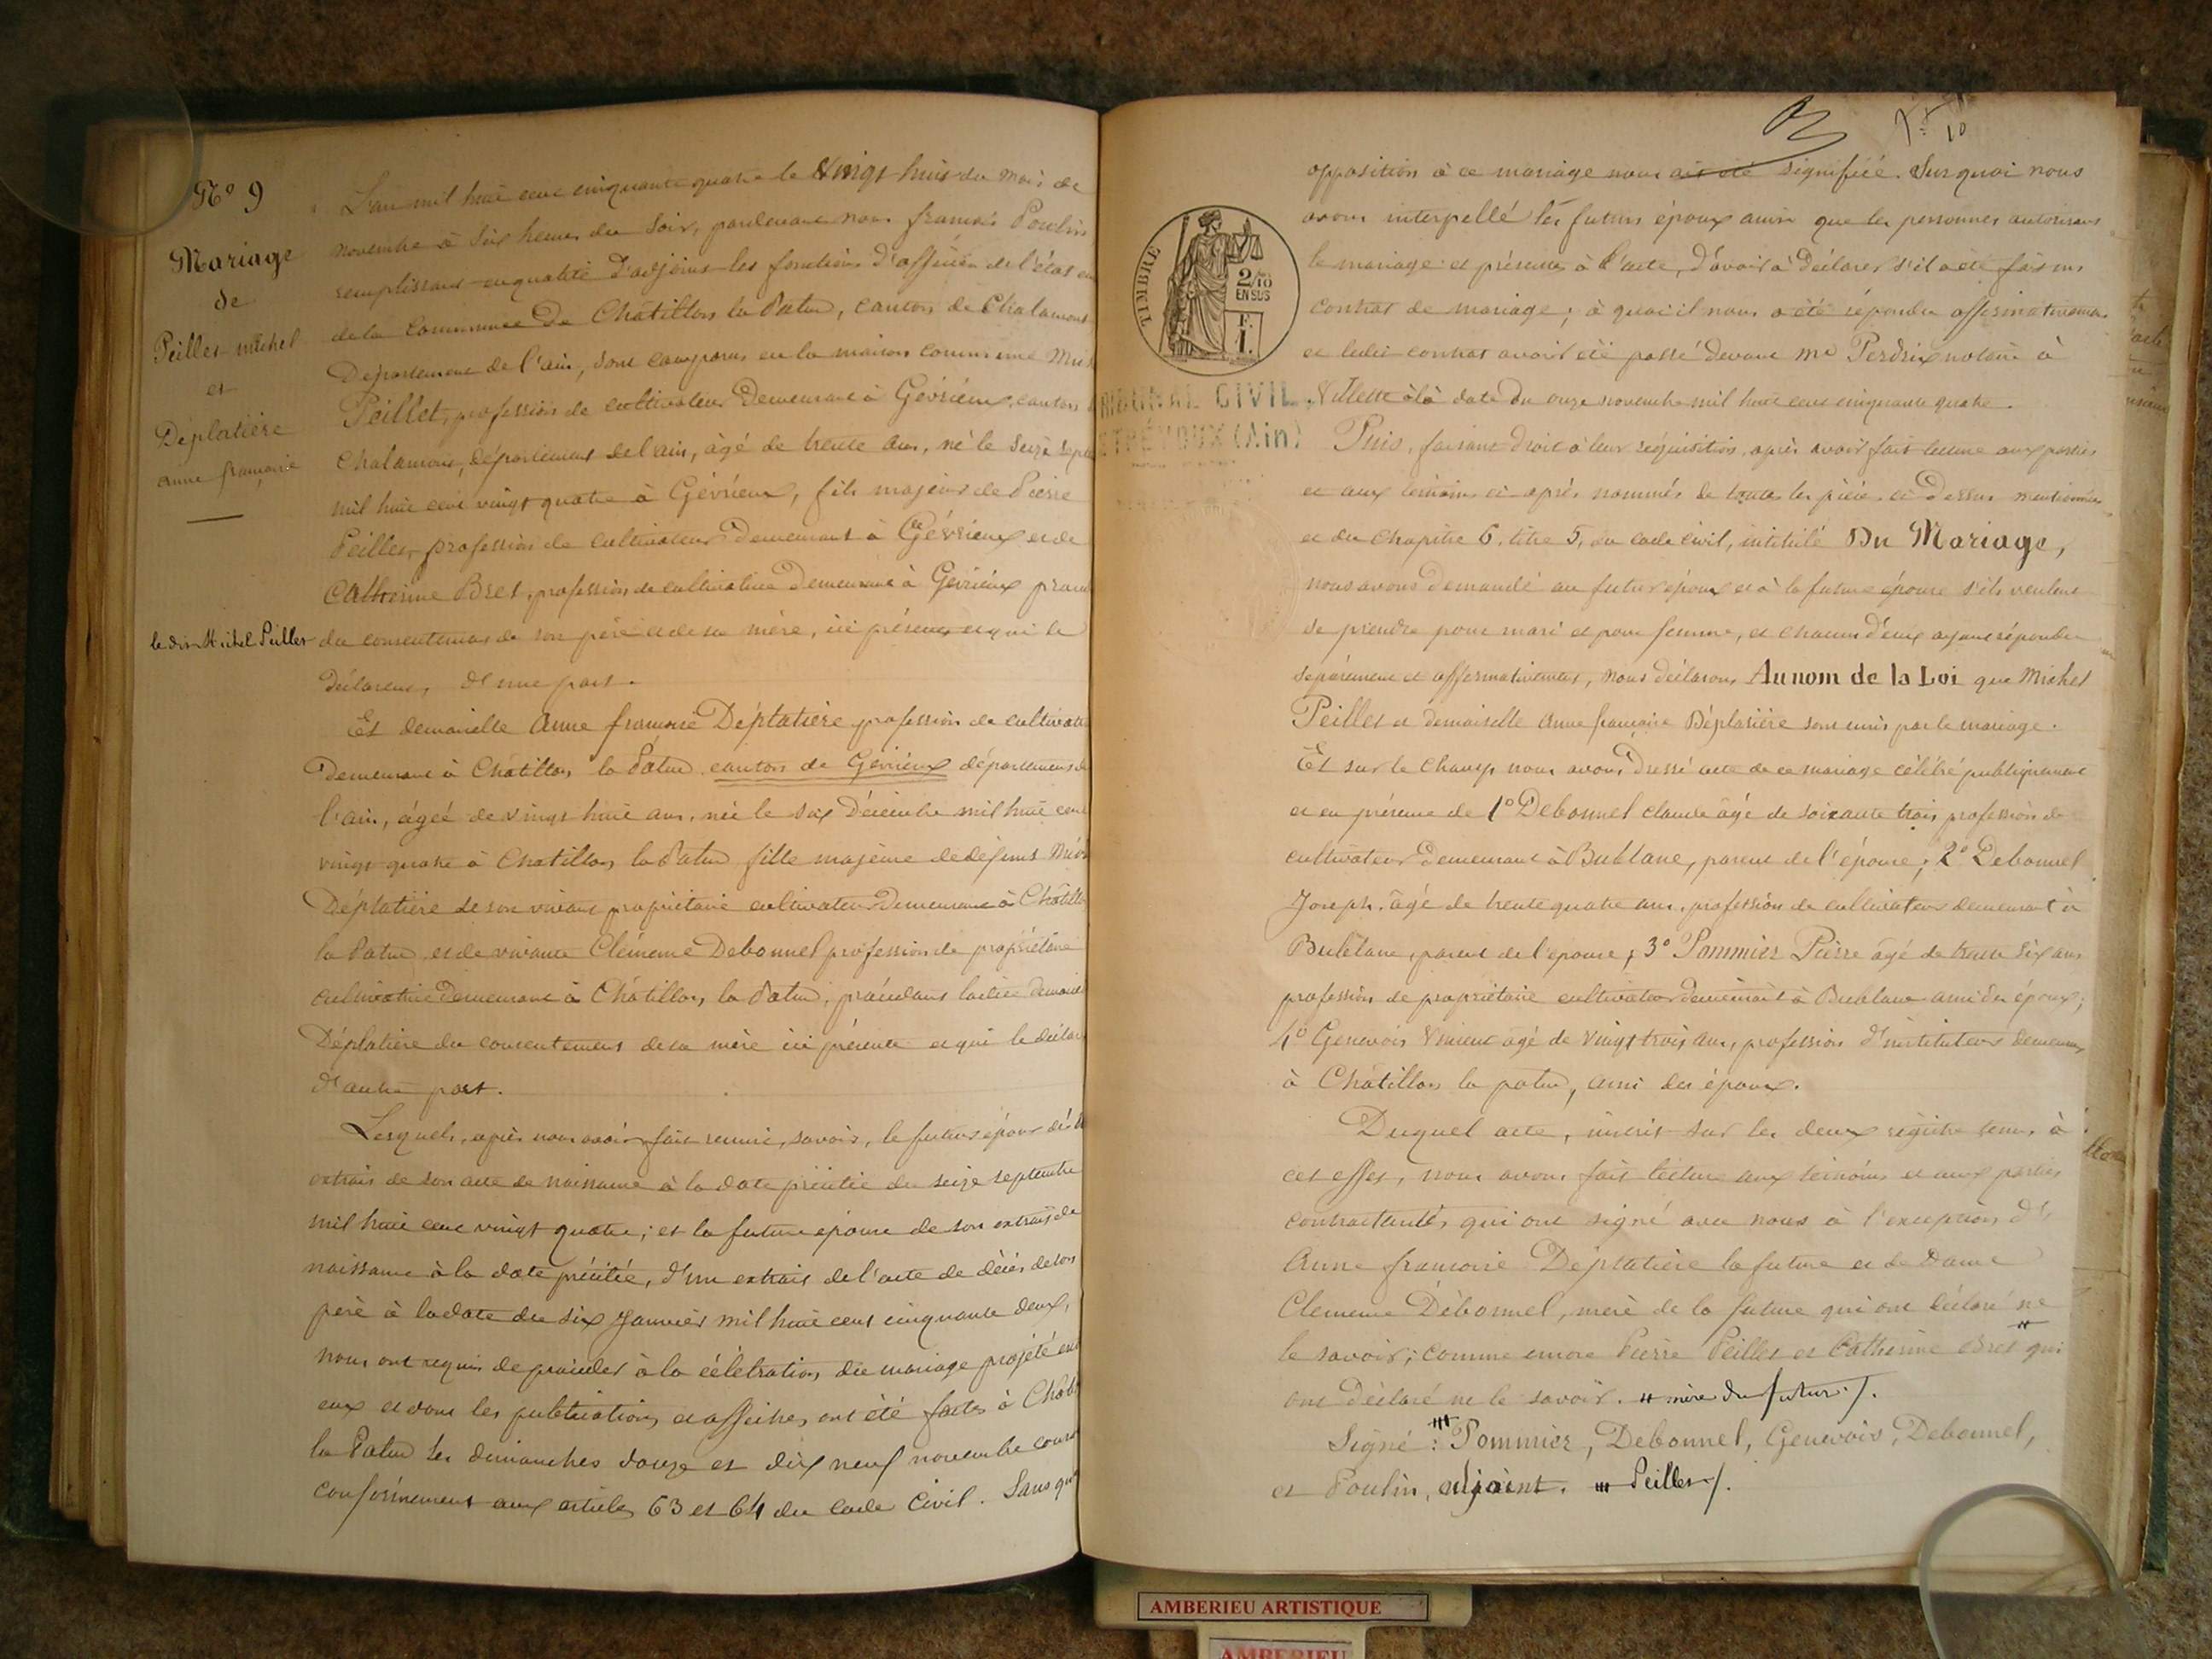 N° 9
Mariage
de
Peillet michel
et
Déplatière
anne françoise
L'an mil huit cent cinquante quatre le vingt huit du mois de
novembre à six heures du soir, pardevant nous françois Poulin
remplissant en qualité d'adjoint les fonctions d'officier de l'état
de la commune De Châtillon la Palud, canton de Chalamont
Département de l'ain, sont comparus en la maison commune
Peillet, profession de cultivateur Demeurant à Gévrieux, canton
Chalamont, département de l'ain, âgé de trente ans, né le seize
mil huit cent vingt quatre à Gévrieux, fils majeur de Pierre
Peillet, profession de cultivateur Demeurant à Gévrieux et de
Catherine Bret, profession de cultivatrice Demeurant à Gévrieux
le dit Michel Peillet du consentement de son père et de sa mère, ici présents et qui le
Déclarent, d'une part.
Et demoiselle Anne françoise Déplatière profession de
Demeurant à Châtillon la Palud canton de Gévrieux département de
l'ain, âgée de vingt huit ans, née le six Décembre mil huit cent
vingt quatre à Chatillon la Palud fille majeure de défunt
Déplatière de son vivant propriétaire cultivateur Demeurant à
la Palud et de vivante Clémence Debonnel profession de propriétaire
cultivatrice Demeurant à Châtillon la Palud, procédant ladite
Déplatière du consentement de sa mère ici présente et qui le
d'autre part.
Lesquels, après nous avoir fait remise, savoir, le futur époux
extrait de son acte de naissance à la date précitée du seize septembre
mil huit cent vingt quatre; et la future épouse de son extrait de
naissance à la date précitée, d'un extrait de l'acte de décès de son
père à la date du six Janvier mil huit cent cinquante deux,
nous ont requis de procéder à la célébration du mariage projeté
eux et dont les publications et affiches ont été faites à
la Palud les dimanches douze et dix neuf novembre
conformément aux articles 63 et 64 du code Civil. Sans
10
opposition à ce mariage nous ait été signifiée. Sur quoi nous
avons interpellé les futurs époux ainsi que les personnes autorisant
le mariage et présentes à l'acte, d'avoir à déclarer s'il a été fait un
contrat de mariage; à quoi il nous a été répondu affirmativement
et ledit contrat avoir été passé devant me Perdrix notaire à
Villette à la date du onze novembre mil huit cent cinquante quatre.
TIMBRE
2/10
EN SUS
F.
1.
TRIBUNAL CIVIL
TRÉVOUX (Ain)
Puis, faisant droit à leur réquisition, après avoir fait lecture aux parties
et aux témoins ci après nommés de toutes les pièces ci Dessus mentionnées
et du chapitre 6, titre 5, du code civil, intitulé Du Mariage,
nous avons demandé au futur époux et à la future épouse s'ils veulent
se prendre pour mari et pour femme, et chacun d'eux ayant répondu
séparément et affirmativement, nous déclarons Au nom de la Loi que Michel
Peillet et demoiselle Anne françoise Déplatière sont unis par le mariage.
Et sur le champ nous avons Dressé acte de ce mariage célébré publiquement
et en présence de 1° Debonnel claude âgé de soixante trois profession de
cultivateur demeurant à Bublane, parent de l'épouse; 2° Debonnel
Joseph, âgé de trente quatre ans, profession de cultivateur demeurant à
Bublane, parent de l'epouse; 3° Pommier Pierre âgé de trente six ans
profession de propriétaire cultivateur demeurant à Bublane ami des époux;
4° Genevois Vincent agé de vingt trois ans, profession d'instituteur demeurant
à Châtillon la palud, ami des époux.
Duquel acte, inscrit sur les deux registre tenus à
cet effet, nous avons fait lecture aux témoins et aux parties
contractantes qui ont signé avec nous à l'exception d'
Anne francoise Déplatière la future et de Dame
Clemence Débonnel, mère de la future qui ont déclaré ne
le savoir; comme encore Pierre Peillet et Catherine Bret # qui
ont déclaré ne le savoir. # mère du futur ./.
Signé : Pommier, Debonnel, Genevois, Debonnel,
et Poulin, adjoint. # Peillet ./.
AMBERIEU ARTISTIQUE
AMBERIEU